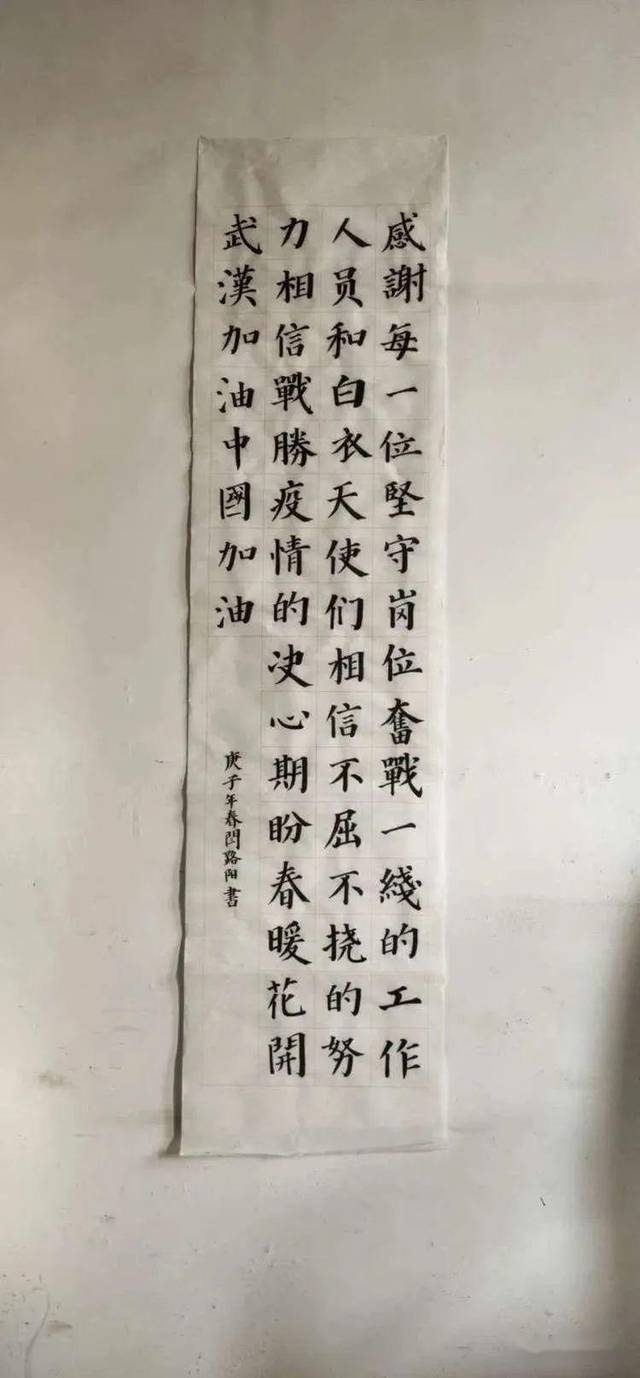 感謝每一位堅守岗位奮戰一綫的工作
人员和白衣天使们相信不屈不挠的努
力相信戰勝疫情的决心期盼春暖花開
武漢加油中國加油
庚子年春閆路阳書